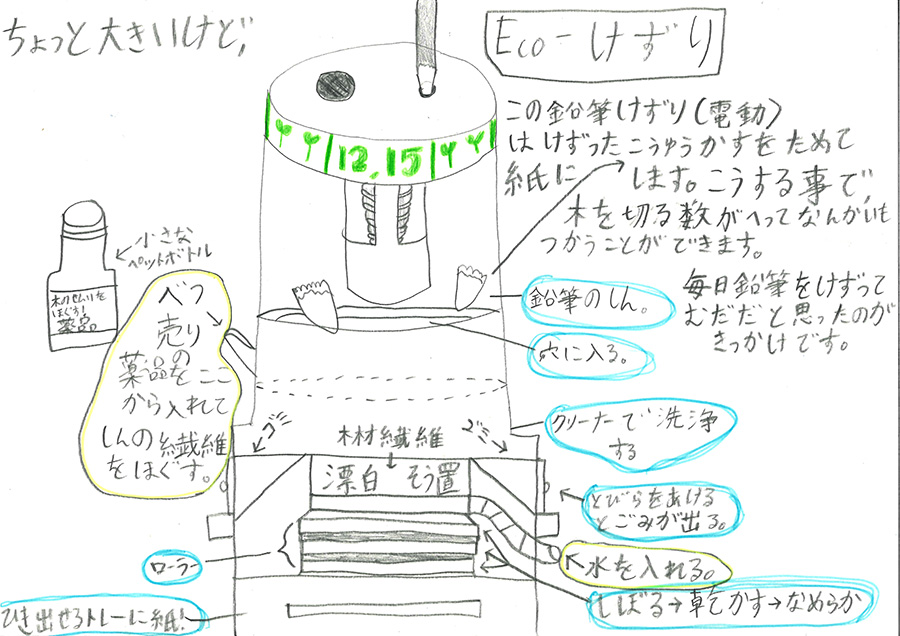 ちょっと大きいけど、
Eco-けずり
この鉛筆けずり(電動)
はけずったこうゆうかすをためて
紙に します。こうする事で、
木を切る数がへってなんかいも
つかうことができます。
12,15
小さな
ペットボトル
木のせんいを
ほぐす!
薬品。
べつ
売り
薬品の
をここ
から入れて
しんの繊維
をほぐす。
鉛筆のしん。
毎日鉛筆をけずって
むだだと思ったのが
きっかけです。
穴に入る。
クリーナーで洗浄
する
ゴミ
木材繊維
ゴミ
漂白 そう置
とびらをあける
とごみが出る。
ローラー
水を入れる。
しぼる→乾かす→なめらか
ひき出せるトレーに紙!